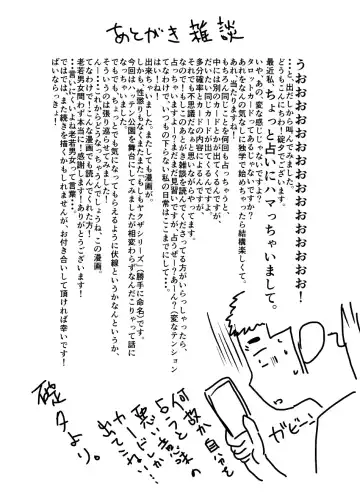 あとがき雑談
うおおおおおおおおおおおおおおおお！
…と、出だしから叫んでみました。
どうもこんにちは、確夕でございます。
最近私、ちょっと占いにハマっちゃいまして。
いや、あの、変な感じじゃないですよ？
タロットカードってあるじゃないですか？
あれを何んの気なしに独学で始めちゃったら結構楽しくて。
あれ、当たりますねー！
もちろん同じことを何回も占っちゃうと、
中には別のカードとか出てくるんですが、
それでも同じカードが出てくるんですよ。
多分確率とかカードの内容だと思うんですが、
それでも不思議だなぁと思いながらやってます。
なので！もしこのあとがき雑談を読んでくださってる方がいらっしゃったら、
占ってやんぜ？まだまだ見習いですが、占うぜー？あーん？（変なテンション
なわけで、いつもの下らない私の日常はここまでにして、
はい！
出来ちゃいました。またしても漫画が。
しかも、性懲りもなくまたまたヤクザシリーズ（勝手に命名）です。
今回はハッテン公園を舞台にしてみましたが相変わらずなんだこりゃって話に
なっちゃいました。
でもでも、ちょっとでも気になってもらえるように伏線というかなんというか、
そういうのは張り巡らせてみました！
んー！これからどうなっちゃうんでしょうね、この漫画。
てなわけで！こんな漫画でも読んでくれた方！
老若男女問わず本当に！感謝します！ありがとうございます！
…言いにくいよね老若男女って言葉…。
ではでは、また続きを描くかもしれませんが、お付き合いして頂ければ幸いです！
ばいならっきょ！
ガビーン
何故か自分を
占うと
悪い意味の
カードしか
出てこない…
確夕より。